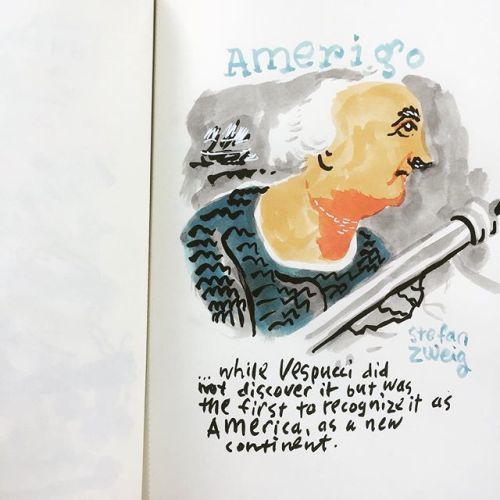 Amerigo
stefan
zweig
... while Vespucci did
not discover it but was
the first to recognize it as
America, as a new
continent.